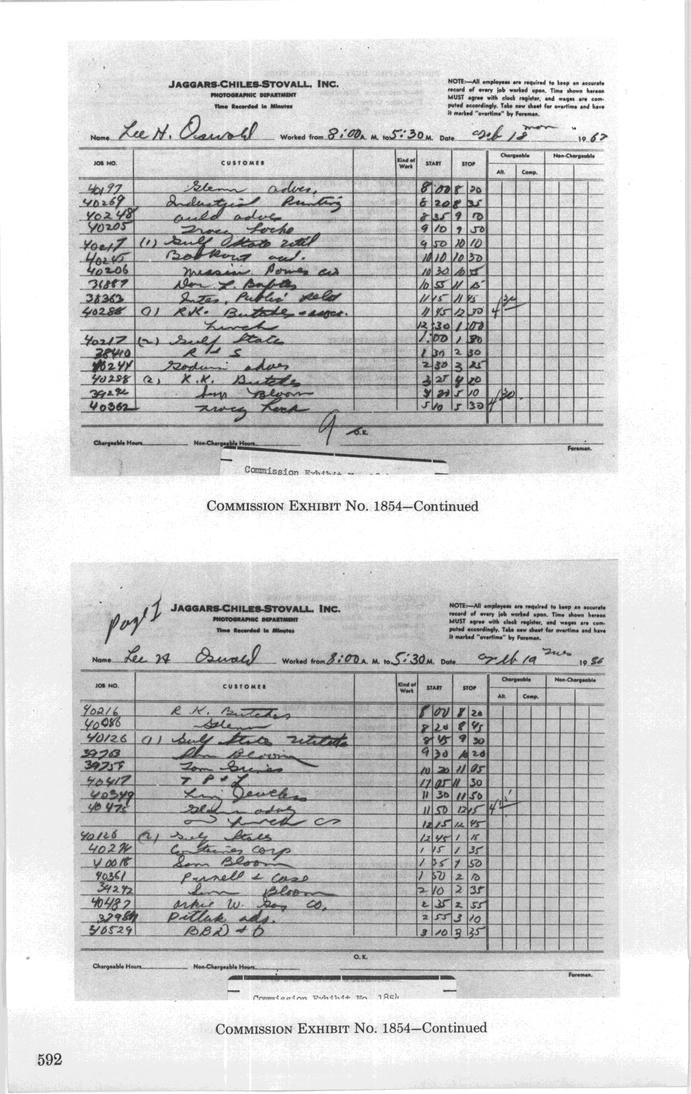 JAGGARS-CHILES-STOVALL, INC.
PHOTOGRAPHIC DEPARTMENT
Time Recorded in Minutes
NOTE:—All employees are required to keep an accurate
record of every job worked upon. Time shown hereon
MUST agree with clock register, and wages are com-
puted accordingly. Take new sheet for overtime and have
it marked "overtime" by Foreman.
Name Lee H. Oswald Worked from 8:00 A. M. to 5:30 M. Date Feb 18 mon
JOB NO. CUSTOMER Kind of Work START STOP Chargeable Non-Chargeable
Alt. Comp.
40197 Glenn adves. 8 00 8 20
40269 Industrial Printing 8 20 8 35
40248 auld adves 8 35 9 10
40205 Tracy Locke 9 10 9 50
40217 (1) Gulf State 9 50 10 10
40245 10 10 10 30
40206 Mission 10 30 10 55
Don L. Baxter 10 55 11 15
38363 Public 11 15 11 45
40288 (1) R.K. Butcher 11 45 12 30
Lunch 12:30 1:00
40217 (2) Gulf States 1:00 1 30
38410 R & S 1 30 2 30
adves 2 30 3 25
40288 (2) R.K. Butcher 3 25 4 20
Sam Bloom 5 10
40362 Tracy Lock 5 10 5 30
9
O.K.
Chargeable Hours Non-Chargeable Hours Foreman.
Commission Exhibit
COMMISSION EXHIBIT NO. 1854—Continued
Page I
JAGGARS-CHILES-STOVALL, INC.
PHOTOGRAPHIC DEPARTMENT
Time Recorded in Minutes
NOTE:—All employees are required to keep an accurate
record of every job worked upon. Time shown hereon
MUST agree with clock register, and wages are com-
puted accordingly. Take new sheet for overtime and have
it marked "overtime" by Foreman.
Name Lee H Oswald Worked from 8:00 A. M. to 5:30 M. Date Feb 19 Tues
JOB NO. CUSTOMER Kind of Work START STOP Chargeable Non-Chargeable
Alt. Comp.
40216 R K. Butcher 8 00 8 20
40086 Glenn 8 20 8 45
40126 (1) Gulf State 8 45 9 30
Sam Bloom 9 30 10 20
39759 Tom 10 20 11 05
40417 T P & L 11 05 11 30
40349 11 30 11 50
40475 Glenn advey 11 50 12 15
Lunch 12 15 12 45
40126 (2) Gulf States 12 45 1 15
40274 Corp 1 15 1 35
40018 Sam Bloom 1 35 1 50
40361 Purnell & Case 1 50 2 10
39292 Sam Bloom 2 10 2 35
40487 W. Co. 2 35 2 55
Pitluk adv. 2 55 3 10
310529 BBD & O 3 10 3 35
O.K.
Chargeable Hours Non-Chargeable Hours Foreman.
Commission Exhibit No. 1854
COMMISSION EXHIBIT NO. 1854—Continued
592